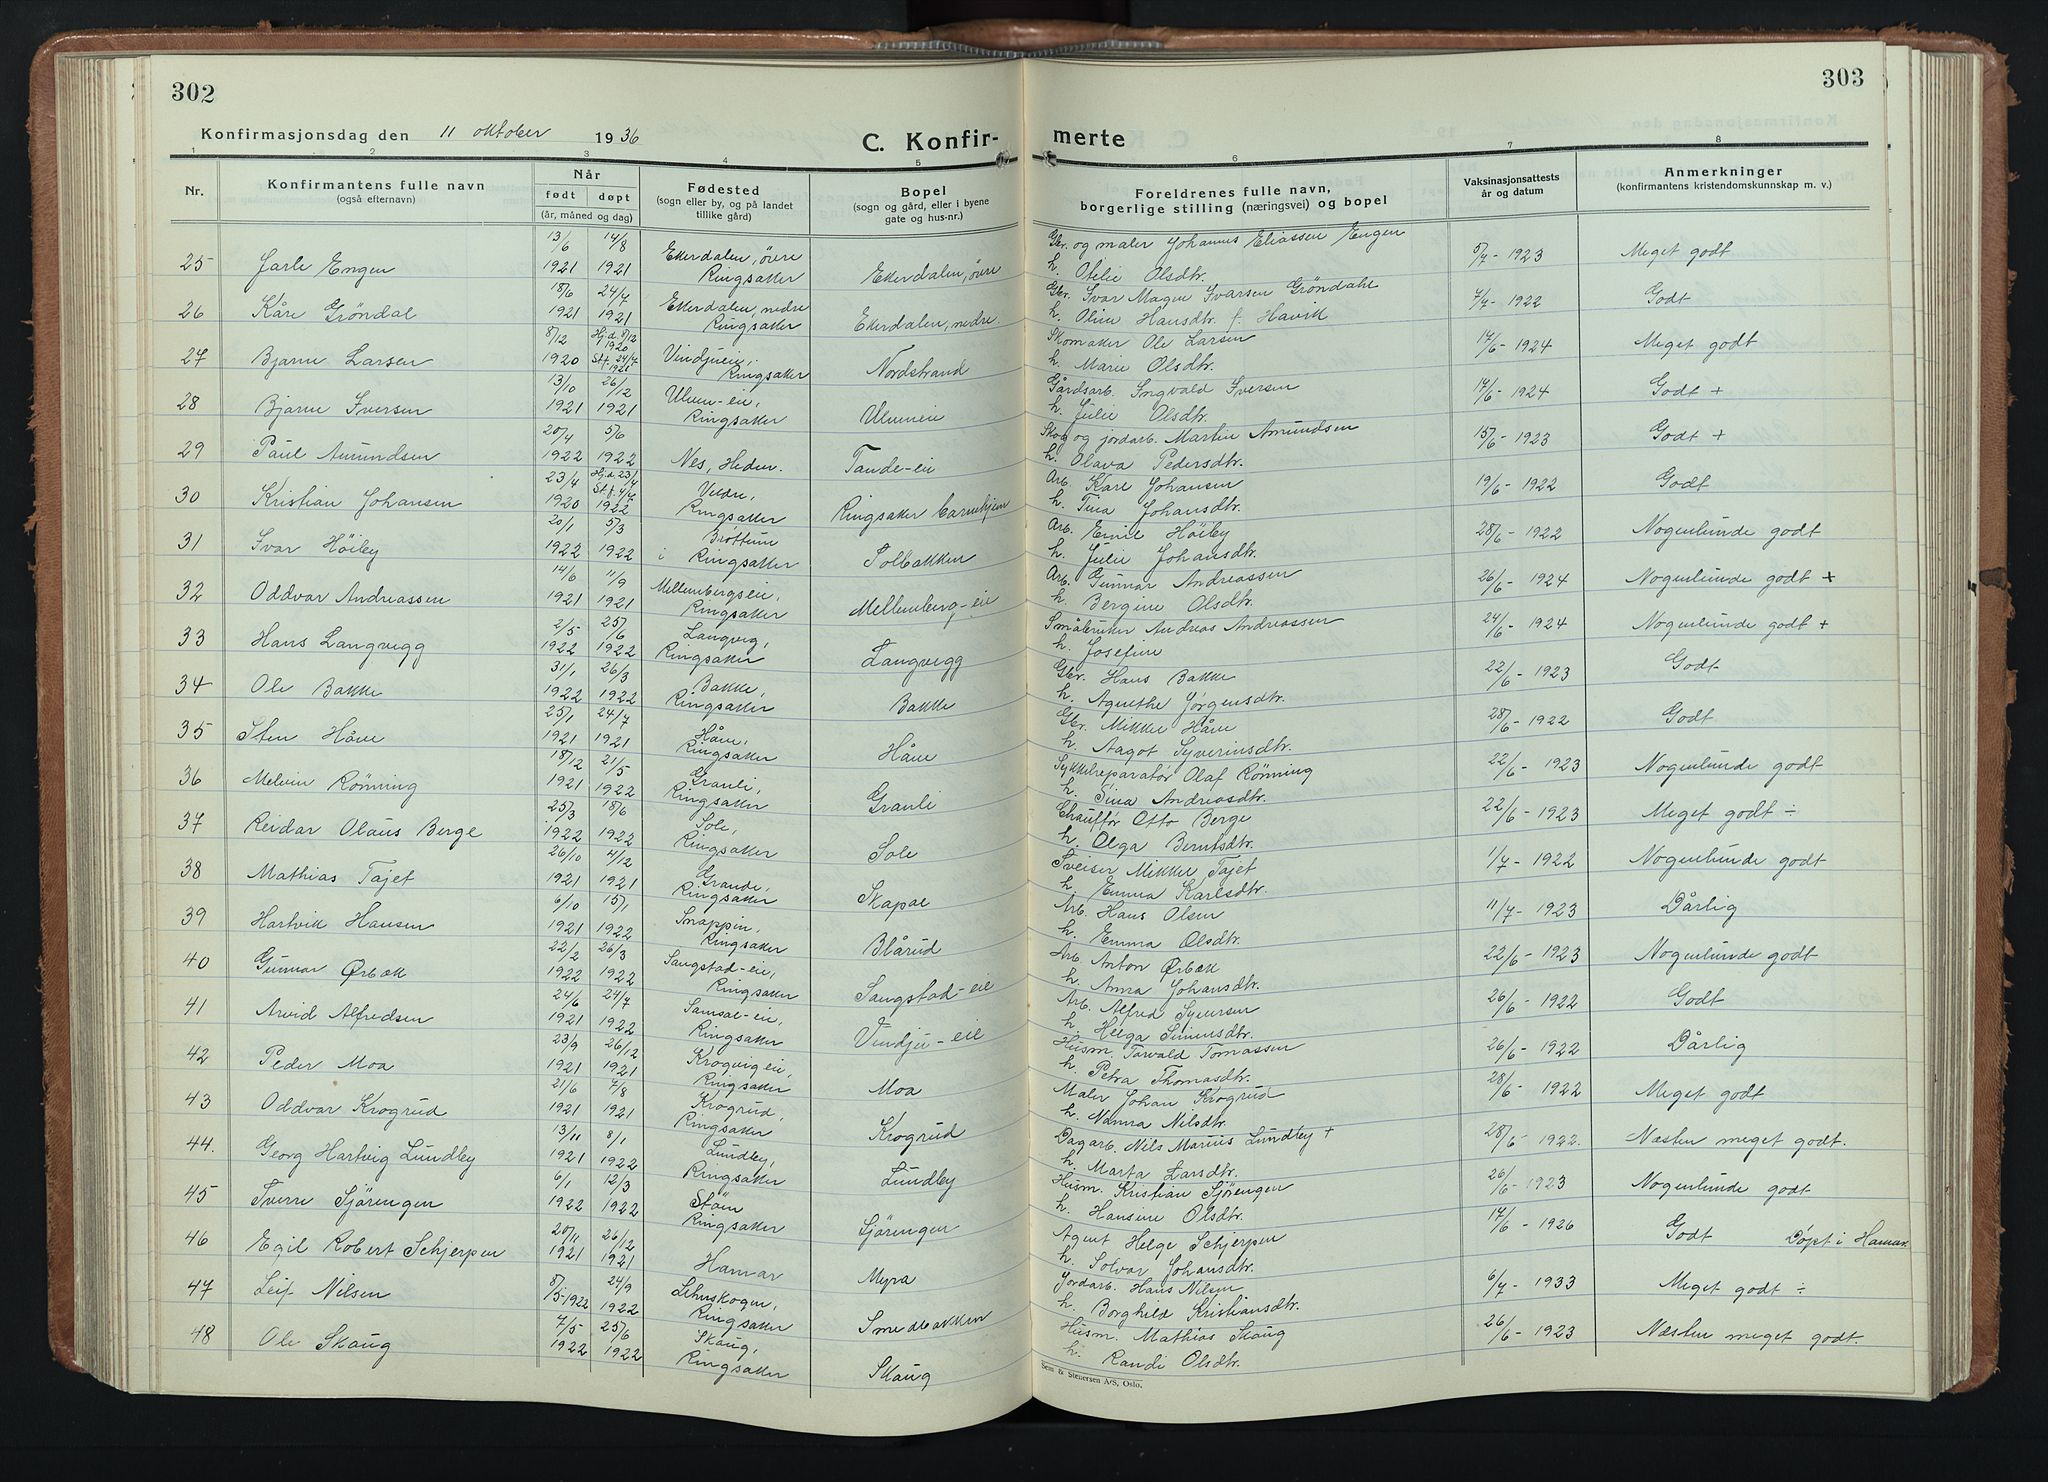 302
Konfirmasjonsdag den 11 oktober 1936
C. Konfir-
1 2 3 4 5
Nr.
Konfirmantens fulle navn
(også efternavn)
Når
født døpt
(år, måned og dag)
Fødested
(sogn eller by, og på landet
tillike gård)
Bopel
(sogn og gård, eller i byene
gate og hus-nr.)
25 Jarle Engen 13/6 1921 14/8 1921 Ekerdalen, øvre Ringsaker Ekerdalen, øvre
26 Kåre Grøndal 18/6 1921 24/7 1921 Ekerdalen, nedre Ringsaker Ekerdalen, nedre.
27 Bjarne Larsen 8/12 1920 Hj.d. 8/12 1920 St.f. 24/7 1921 Vindjueie, Ringsaker Nordstrand
28 Bjarne Iversen 13/10 1921 26/12 1921 Ulven-eie, Ringsaker Ulveneie
29 Paul Amundsen 20/4 1922 5/6 1922 Nes, Hedm. Tande-eie
30 Kristian Johansen 23/4 1920 Hj.d. 23/4 St.f. 4/6 1922 Veldre, Ringsaker Ringsaker barnehjem
31 Ivar Høiby 20/1 1922 5/3 1922 Brøttum i Ringsaker Solbakken
32 Oddvar Andreassen 14/6 1921 11/9 1921 Mellembergseie, Ringsaker Mellemberg-eie
33 Hans Langvegg 2/5 1922 25/6 1922 Langveg, Ringsaker Langvegg
34 Ole Bakke 31/1 1922 26/3 1922 Bakke, Ringsaker Bakke
35 Sten Håve 25/1 1921 24/7 1921 Håve, Ringsaker Håve
36 Melvin Rønning 18/12 1921 21/5 1922 Granli, Ringsaker Granli
37 Reidar Olaus Berge 25/3 1922 18/6 1922 Sole, Ringsaker Sole
38 Mathias Tajet 26/10 1921 4/12 1921 Grande, Ringsaker Skapal
39 Hartvik Hansen 6/10 1921 15/1 1922 Snappen, Ringsaker Blårud
40 Gunnar Ørbæk 22/2 1922 26/3 1922 Sangstad-eie, Ringsaker Sangstad-eie
41 Arvid Alfredsen 24/6 1921 24/7 1922 Samsal-eie, Ringsaker Vindju-eie
42 Peder Moa 23/9 1921 26/12 1921 Krogvigeie, Ringsaker Moa
43 Oddvar Krogrud 21/6 1921 7/8 1921 Krogrud, Ringsaker Krogrud
44. Georg Hartvig Lundby 13/11 1921 8/1 1922 Lundby, Ringsaker Lundby
45 Sverre Sjørengen 6/1 1922 12/3 1922 Støen Ringsaker Sjørengen
46 Egil Robert Schjerpen 20/11 1921 26/12 1921 Hamar Myra
47 Leif Nilsen 8/5-1922 24/9 1922 Lihnskogen, Ringsaker Smedbakken
48 Ole Skaug 7/5 1922 25/6 1922 Skaug, Ringsaker Skaug
303
merte
6 7 8
Foreldrenes fulle navn,
borgerlige stilling (næringsvei) og bopel
Vaksinasjonsattests
år og datum
Anmerkninger
(konfirmantens kristendomskunnskap m. v.)
Gbr. og maler Johannes Eliassen Engen 5/7-1923 Meget godt
h. Otelie Olsdtr.
Gbr. Ivar Magne Ivarsen Grøndahl 7/7-1922 Godt
h. Oline Hansdtr. f. Havik
Skomaker Ole Larsen 17/6-1924 Meget godt
h. Marie Olsdtr.
Gårdsarb. Ingvald Iversen 17/6-1924 Godt +
h. Julie Olsdtr.
Skog og jordarb. Martin Amundsen 15/6-1923 Godt +
h. Olava Pedersdtr.
Arb. Karl Johansen 19/6-1922 Godt
h. Tina Johansdtr.
Arb. Emil Høiby 28/6-1922 Nogenlunde godt
h. Julie Johansdtr.
Arb. Gunnar Andreassen 26/6-1924 Nogenlunde godt +
h. Bergine Olsdtr.
Småbruker Andreas Andreassen 24/6-1924 Nogenlunde godt +
h. Josefine
Gbr. Hans Bakke 22/6-1923 Godt
h. Agnethe Jørgensdtr.
Gbr. Mikkel Håve 28/6-1922 Godt
h. Aagot Syverinsdtr.
Sykkelreparatør Olaf Rønning 22/6-1923 Nogenlunde godt
h. Sina Andreasdtr.
Chauffør Otto Berge 22/6-1923 Meget godt ÷
h. Olga Berntsdtr.
Sveiser Mikkel Tajet 1/7-1922 Nogenlunde godt
h. Emma Karlsdtr.
Arb. Hans Olsen 11/7-1923 Dårlig
h. Emma Olsdtr.
Arb. Anton Ørbæk 22/6-1923 Nogenlunde godt
h. Anna Johansdtr.
Arb. Alfred Syversen 26/6-1922 Godt
h. Helga Simensdtr.
Husm. Torvald Tomassen 26/6-1922 Dårlig
h. Petra Thomasdtr.
Maler Johan Krogrud 28/6-1922 Meget godt
h. Nanna Nilsdtr.
Dagarb. Nils Marius Lundby + 28/6-1922. Næsten meget godt.
h. Marta Larsdtr.
Husm. Kristian Sjørengen 26/6-1923 Nogenlunde godt
h. Hansine Olsdtr.
Agent Helge Schjerpen 17/6-1926 Godt Døpt i Hamar.
h. Solvår Johansdtr.
Jordarb. Hans Nilsen 6/7-1933 Meget godt ÷
h. Borghild Kristiansdtr.
Husm. Mathias Skaug 26/6-1923 Næsten meget godt.
h. Randi Olsdtr.
Sem & Stenersen A/S, Oslo.